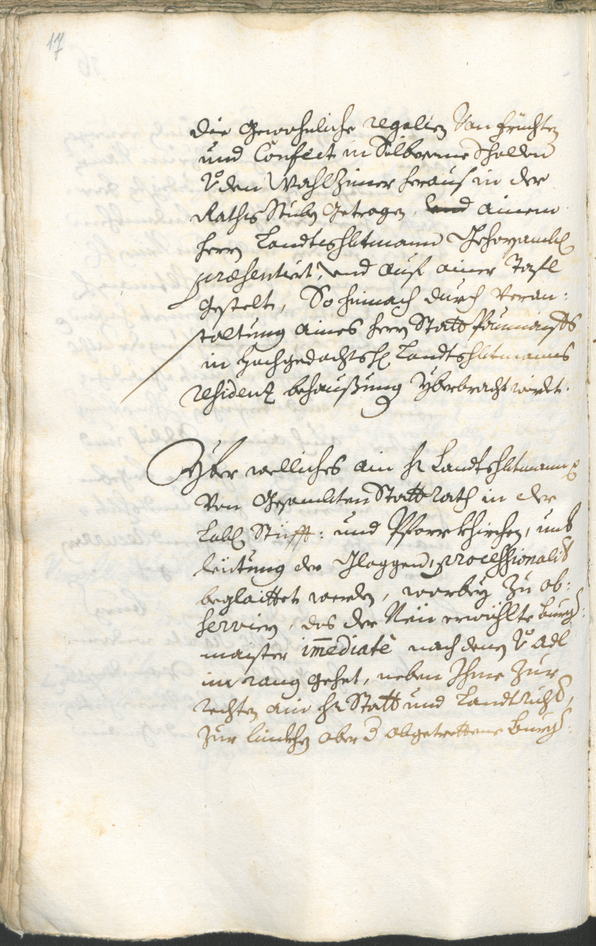 17
die gewohnliche regalien von früchten
und Confect in Silberene Schallen
von den Wahlzimer herauf in der
Raths Stuben getragen, und ainem
herrn Landtshbtmann
præsentiert, und auf ainer Tafl
gestelt, So hinnach durch veran:
staltung aines herrn Statt
in hochgedachts H Landtshbtmanns
residenz behaußung yberbracht wirdt.
Yber welliches ain H Landtshbtmann
von gesambten Stattrath in der
Lobl Stüfft: und Pfarrkhirchen, unter
leüttung der Gloggen, processionalit
beglaittet werden, worbey zu ob:
servirn, das der Neü erwöhlte burg:
maister immediatè nach dem v adl
im rang gehet, neben Ihme zur
rechten ain H Statt und Landtricht,
zur linkhen aber d abgetrettene burg: